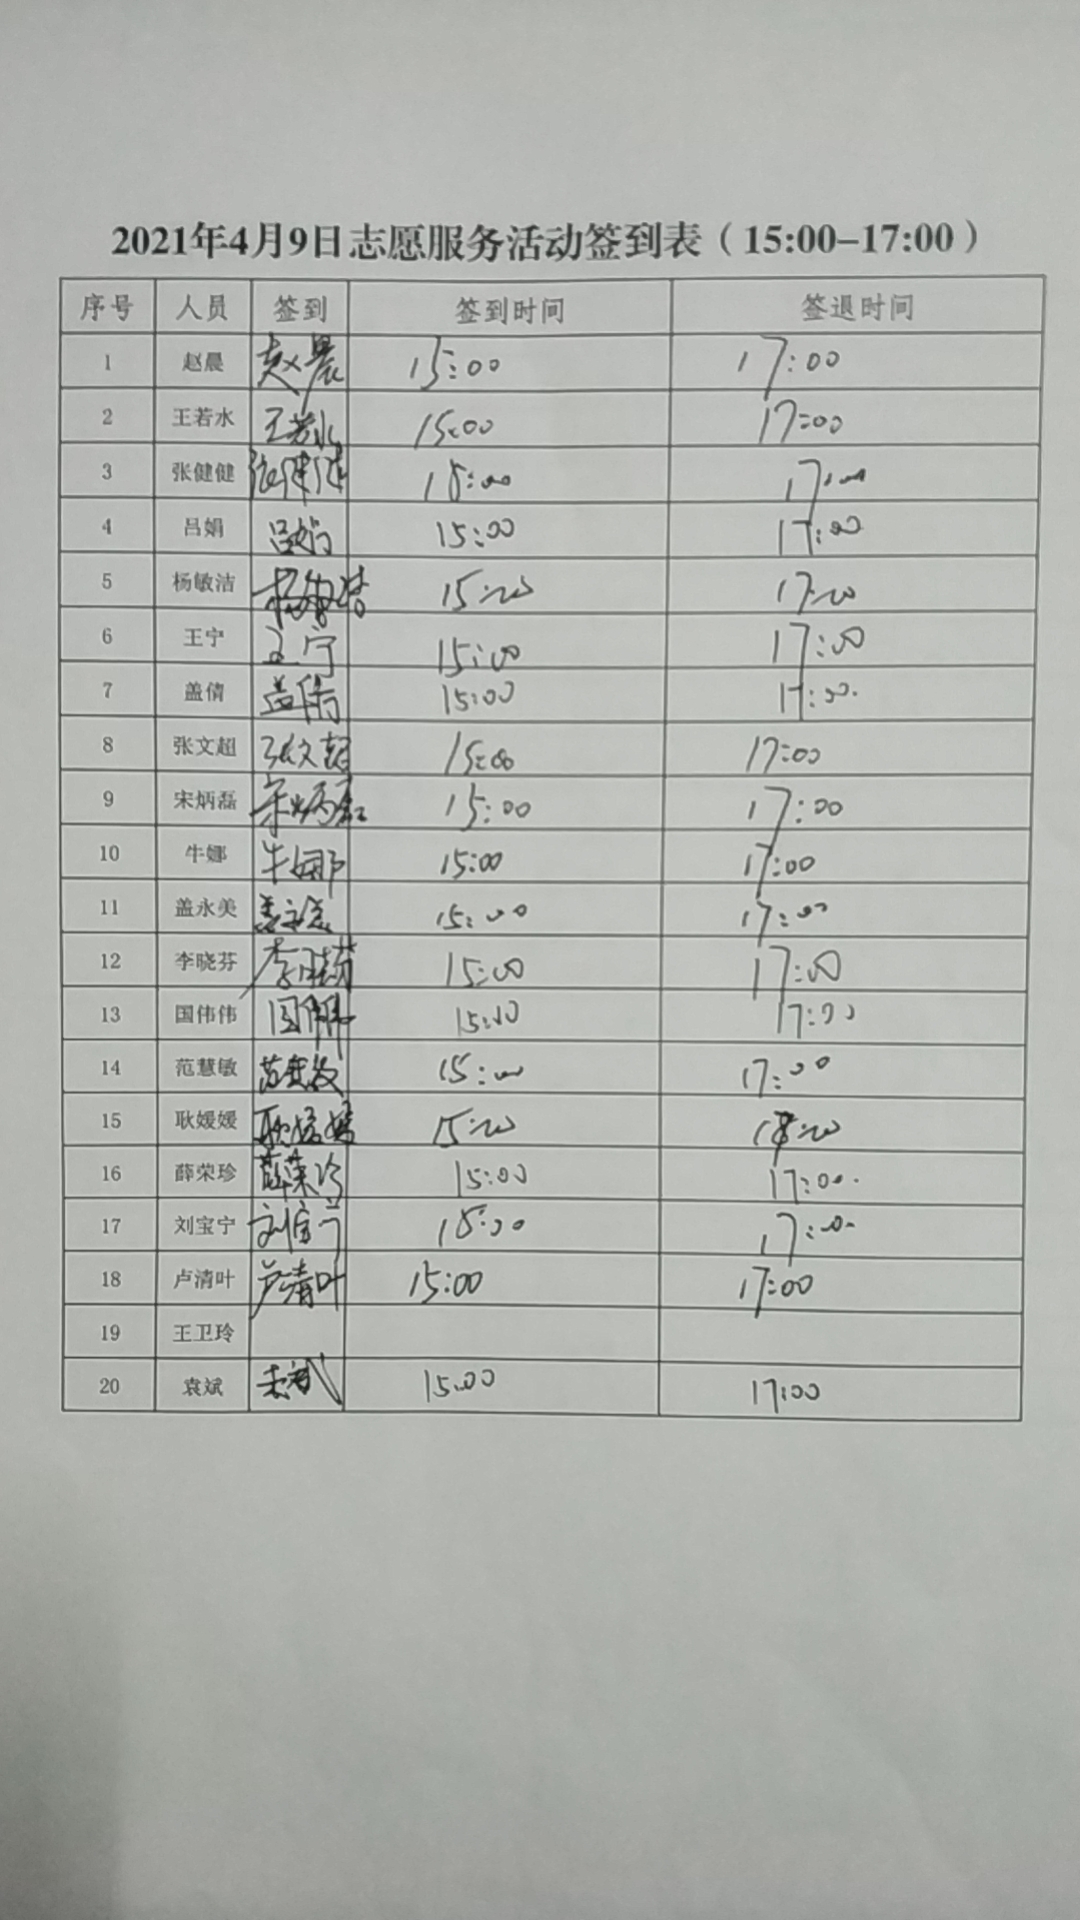 2021年4月9日志愿服务活动签到表（15:00-17:00）
序号 人员 签到 签到时间 签退时间
1 赵晨 赵晨 15:00 17:00
2 王若水 王若水 15:00 17:00
3 张健健 张健健 15:00 17:00
4 吕娟 吕娟 15:00 17:00
5 杨敏洁 杨敏洁 15:00 17:00
6 王宁 王宁 15:00 17:00
7 盖倩 盖倩 15:00 17:00
8 张文超 张文超 15:00 17:00
9 宋炳磊 宋炳磊 15:00 17:00
10 牛娜 牛娜 15:00 17:00
11 盖永美 盖永美 15:00 17:00
12 李晓芬 李晓芬 15:00 17:00
13 国伟伟 国伟伟 15:00 17:00
14 范慧敏 范慧敏 15:00 17:00
15 耿媛媛 耿媛媛 15:00
16 薛荣珍 薛荣珍 15:00 17:00
17 刘宝宁 刘宝宁 15:00 17:00
18 卢清叶 卢清叶 15:00 17:00
19 王卫玲
20 袁斌 袁斌 15:00 17:00